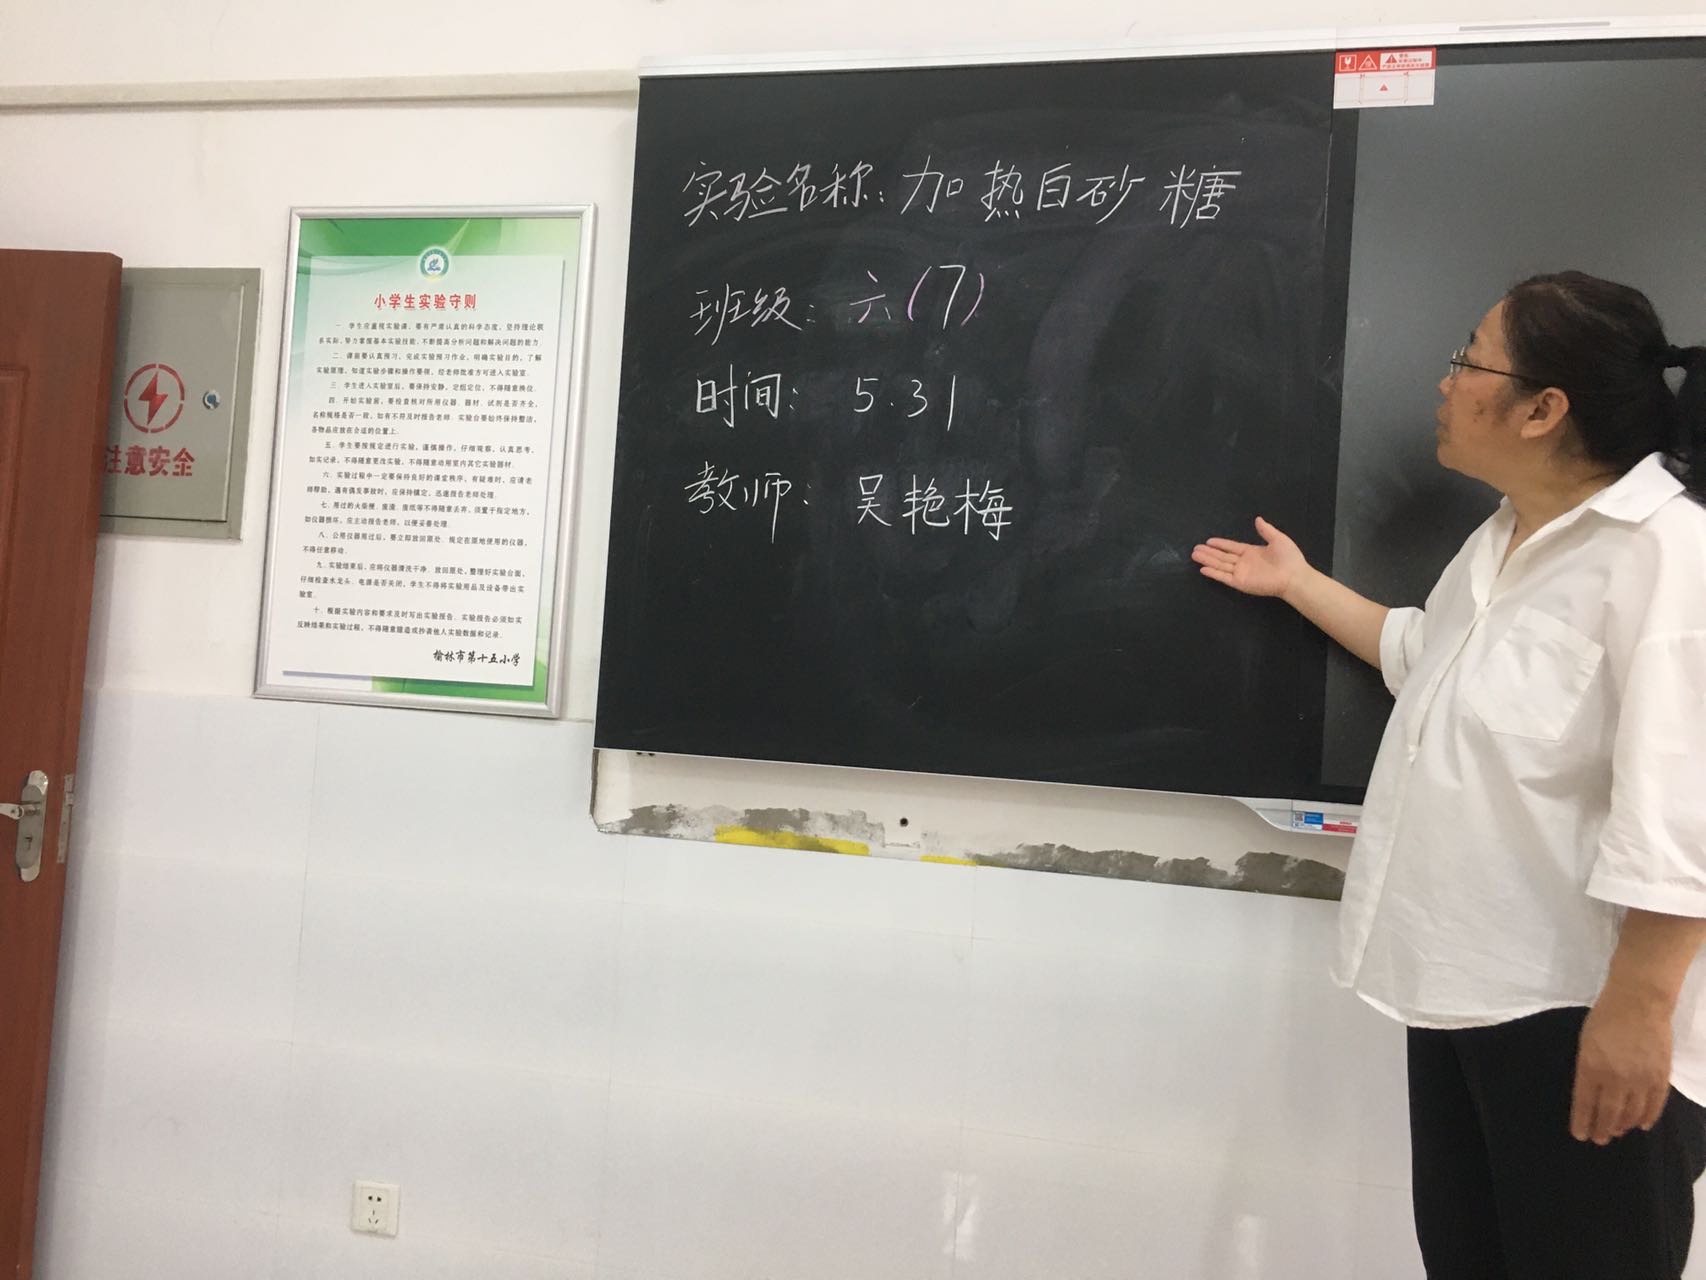 实验名称：加热白砂糖
班级：六(7)
时间：5.31
教师：吴艳梅
小学生实验守则
一、学生应重视实验课，要有严肃认真的科学态度，坚持理论联
系实际，努力掌握基本实验技能，不断提高分析问题和解决问题的能力。
二、课前要认真预习，完成实验预习作业，明确实验目的，了解
实验原理，知道实验步骤和操作要领，经老师批准方可进入实验室。
三、学生进入实验室后，要保持安静，定组定位，不得随意换位。
四、开始实验前，要检查核对所用仪器、器材、试剂是否齐全，
名称规格是否一致，如有不符及时报告老师。实验台要始终保持整洁，
各物品应放在合适的位置上。
五、学生要按规定进行实验，谨慎操作，仔细观察，认真思考，
如实记录，不得随意更改实验，不得随意动用室内其它实验器材。
六、实验过程中一定要保持良好的课堂秩序，有疑难时，应请老
师帮助，遇有偶发事故时，应保持镇定，迅速报告老师处理。
七、用过的火柴梗、废液、废纸等不得随意丢弃，须置于指定地方，
如仪器损坏，应主动报告老师，以便妥善处理。
八、公用仪器用过后，要立即放回原处，规定在原地使用的仪器，
不得任意移动。
九、实验结束后，应将仪器清洗干净、放回原处，整理好实验台面，
仔细检查水龙头、电源是否关闭，学生不得将实验用品及设备带出实
验室。
十、根据实验内容和要求及时写出实验报告。实验报告必须如实
反映结果和实验过程，不得随意臆造或抄袭他人实验数据和记录。
榆林市第十五小学
注意安全